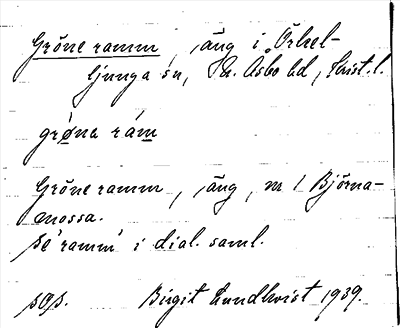 Gröne ramm, äng i Örkel-
ljunga sn, N. Åsbo hd, Krist. l.
grø̄na ram
Gröne ramm, äng, m / Björna-
mossa.
Se 'ramm' i dial. saml.
Birgit Lundkvist 1939.